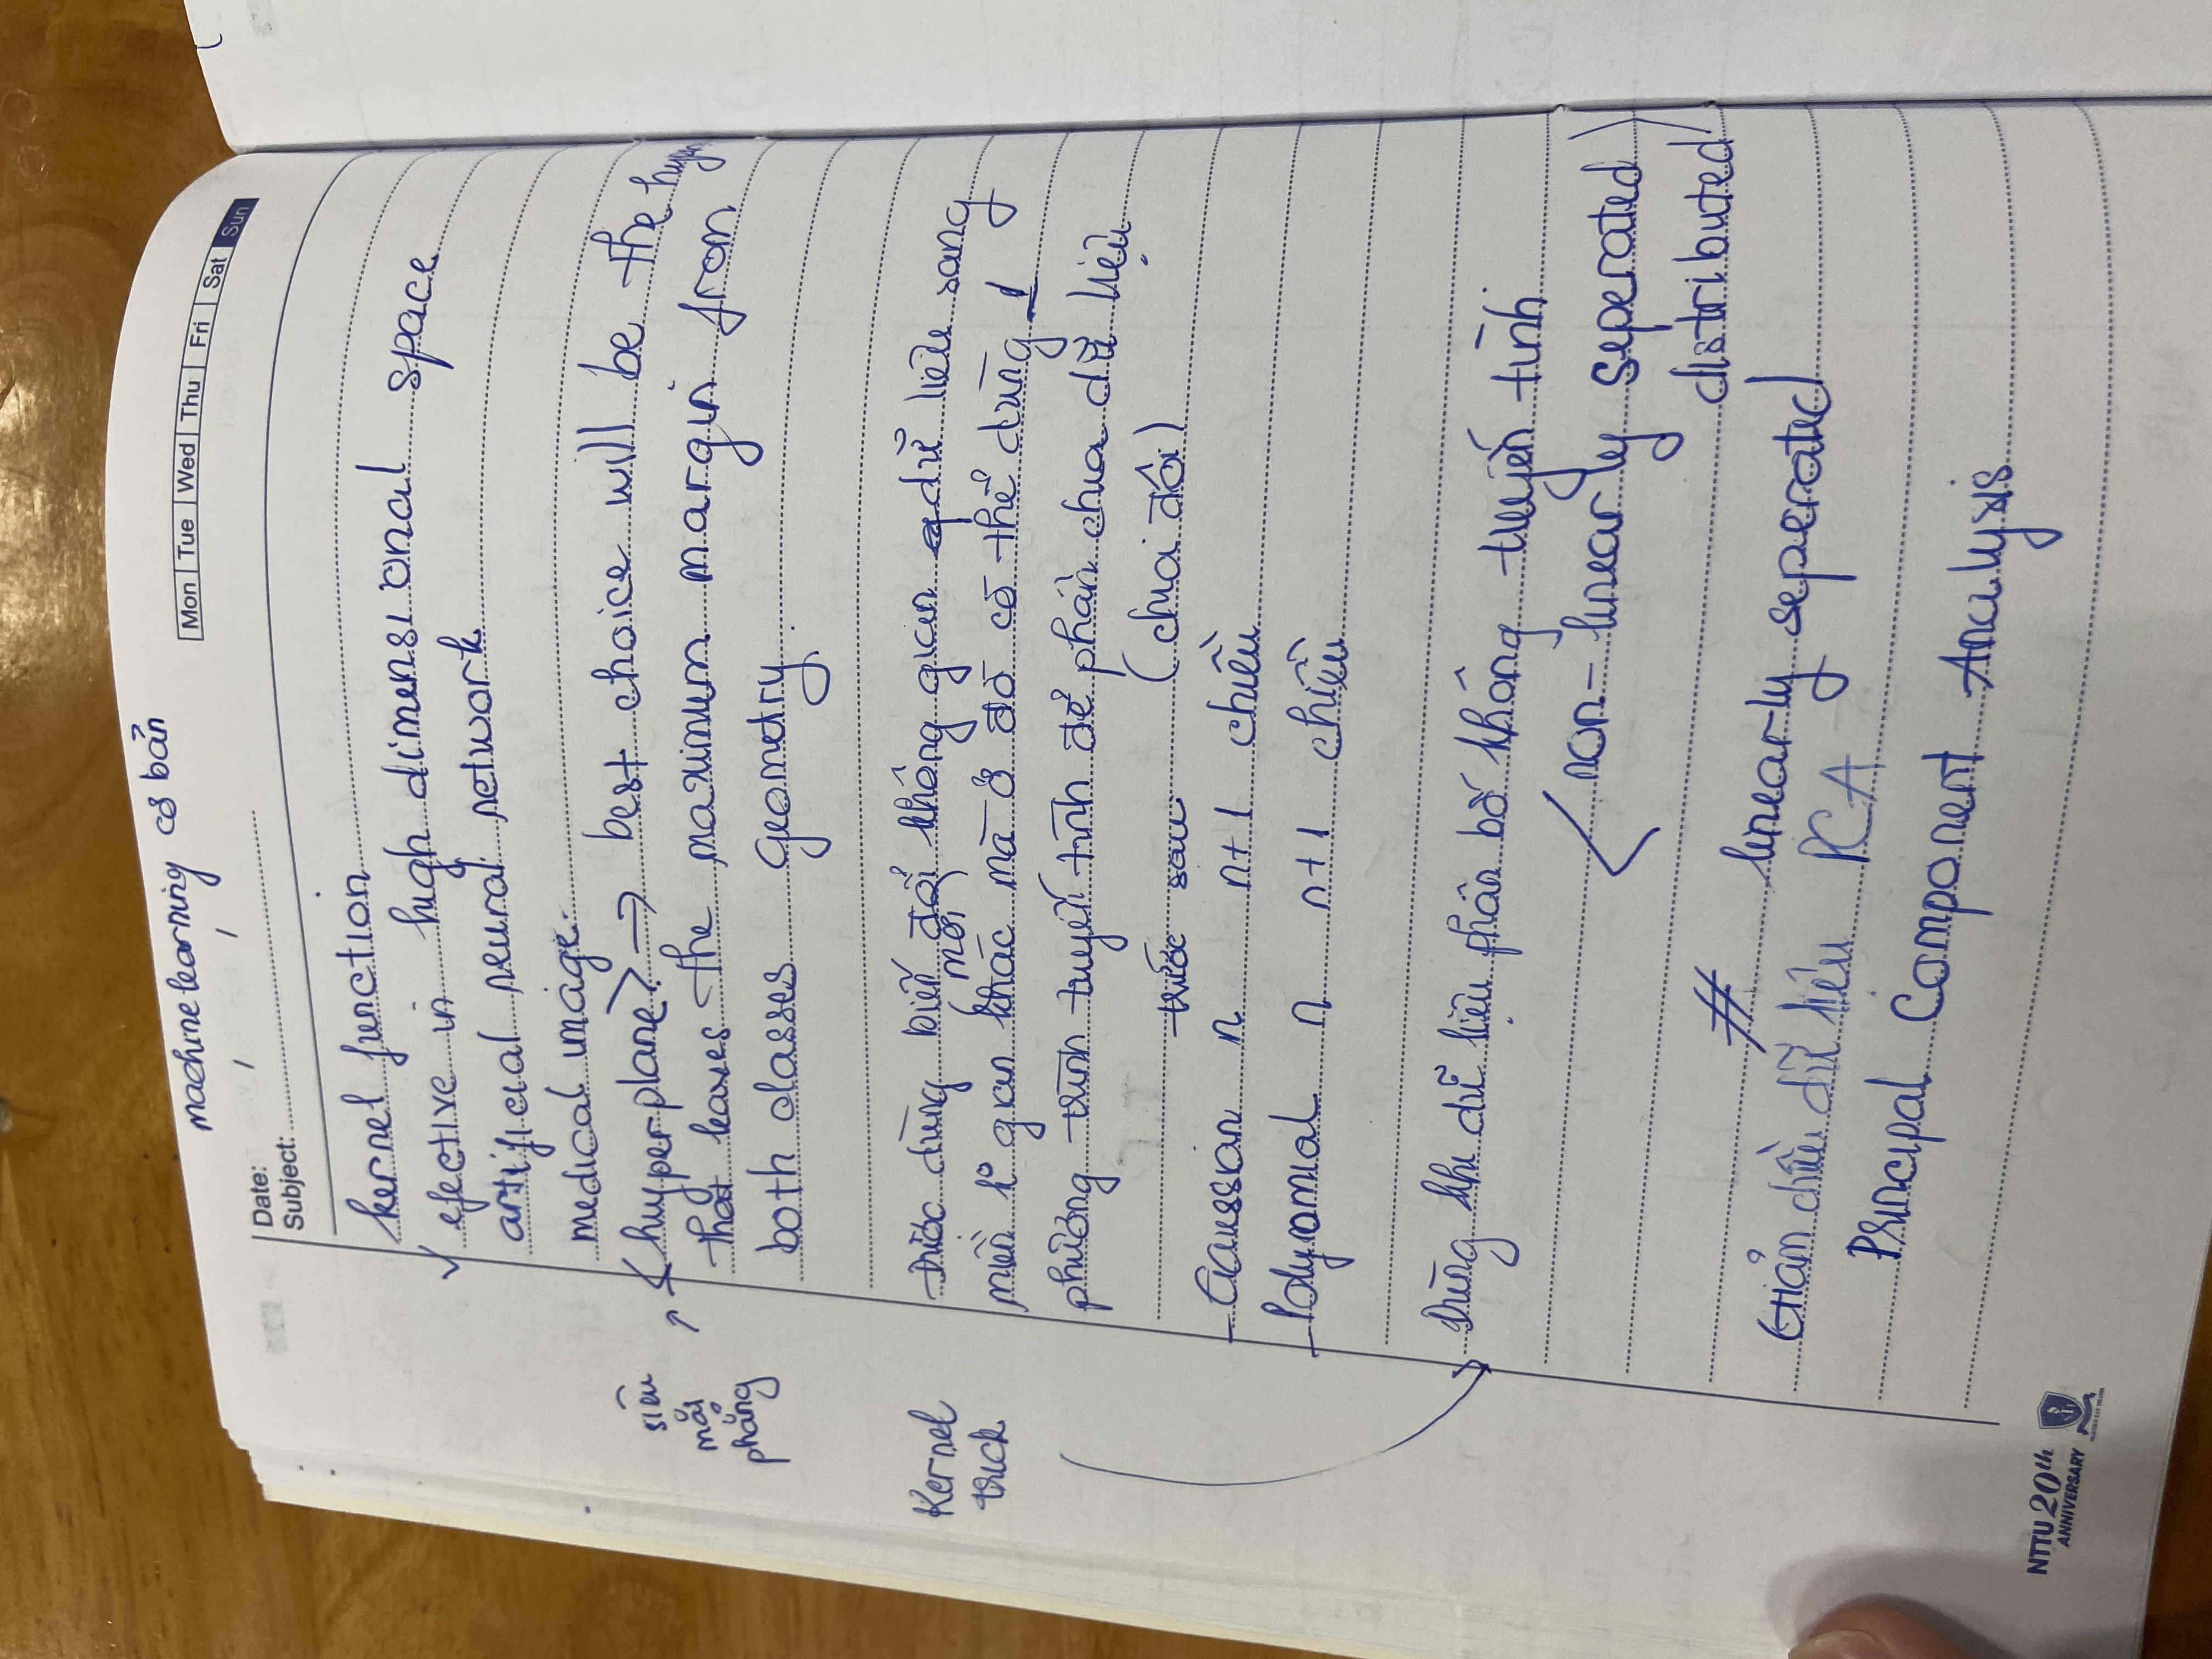 machine learning cơ bản
Mon Tue Wed Thu Fri Sat Sun
Date: / /
Subject:
kernel function
✓ efective in high dimensional space
artificial neural network
medical image.
siêu mặt phẳng
<hyperplane> → best choice will be the hyper
that leaves the maximum margin from
both classes geometry
Kernel trick
Được dùng biến đổi không gian dữ liệu sang
(mới)
miền k° gian khác mà ở đó có thể dùng 1
phương trình tuyến tính để phân chia dữ liệu
(chia đôi)
trước sau
- Gaussian n n+1 chiều
- Polynomial n n+1 chiều
Dùng khi dữ liệu phân bố không tuyến tính
<non-linearly seperated
distributed>
# linearly seperated
Giảm chiều dữ liệu PCA
Principal Component Analysis
NTTU 20th
ANNIVERSARY